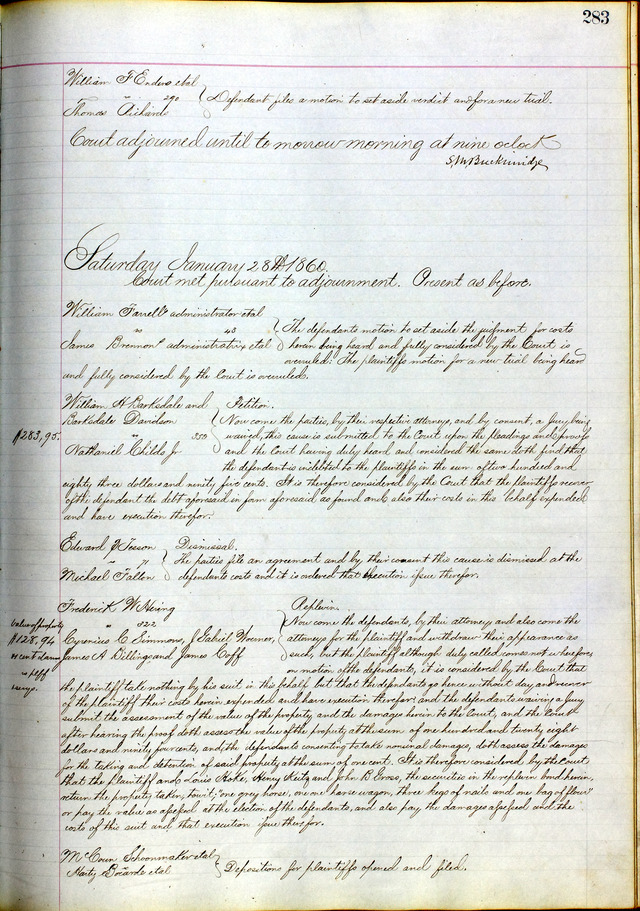 283
William F Enders etal
" 290 Defendant files a motion to set aside verdict and for a new trial.
Thomas Richards
Court adjourned until to morrow morning at nine oclock
Saturday January 28th 1860.
Court met pursuant to adjournment. Present as before.
William Farrell administrator etal
" 43 The defendants motion to set aside the judgment for costs
James Brennon administratrix etal herein being heard and fully considered by the Court is
overruled. The plaintiffs motion for a new trial being heard
and fully considered by the Court is overruled.
William H Barksdale and Petition.
Barksdale Davidson Now come the parties, by their respective attorneys, and by consent, a jury being
$283,95. " 350 waived, this cause is submitted to the Court upon the pleadings and proofs
Nathaniel Childs Jr and the Court having duly heard and considered the same doth find that
the defendant is indebted to the plaintiffs in the sum of two hundred and
eighty three dollars and ninety five cents. It is therefore considered by the Court that the plaintiffs recover
of the defendant the debt aforesaid in form aforesaid as found and also their costs in this behalf expended
and have execution therefor.
Edward J Tesson Dismissal.
" 71 The parties file an agreement and by their consent this cause is dismissed at the
Michael Fallen defendants costs and it is ordered that execution issue therefor.
Frederick W Hering Replevin.
" 322 Now come the defendants, by their attorney and also come the
value of property
$128,94 Cyrenius C Simmons, J Gabriel Woerner, attorneys for the plaintiff and withdraw their appearance as
James A Dilling and James Goff such, but the plaintiff although duly called comes not wherefore,
on motion of the defendants, it is considered by the Court that
the plaintiff take nothing by his suit in this behalf but that the defendants go hence without day and recover
of the plaintiff their costs herein expended and have execution therefor; and the defendants waiving a jury
submit the assessment of the value of the property and the damages herein to the Court, and the Court
after hearing the proof doth assess the value of the property at the sum of one hundred and twenty eight
dollars and ninety four cents, and, the defendants consenting to take nominal damages, doth assess the damages
for the taking and detention of said property at the sum of one cent. It is therefore considered by the Court
that the plaintiff and Louis Koke, Henry Keitz and John B Gross, the securities in the replevin bond herein,
return the property taken, towit; "one grey horse, one one horse wagon, three kegs of nails and one bag of flour"
or pay the value so assessed, at the election of the defendants, and also pay the damages assessed and the
costs of this suit and that execution issue therefor.
McCoun Schoonmaker etal
" Depositions for plaintiffs opened and filed.